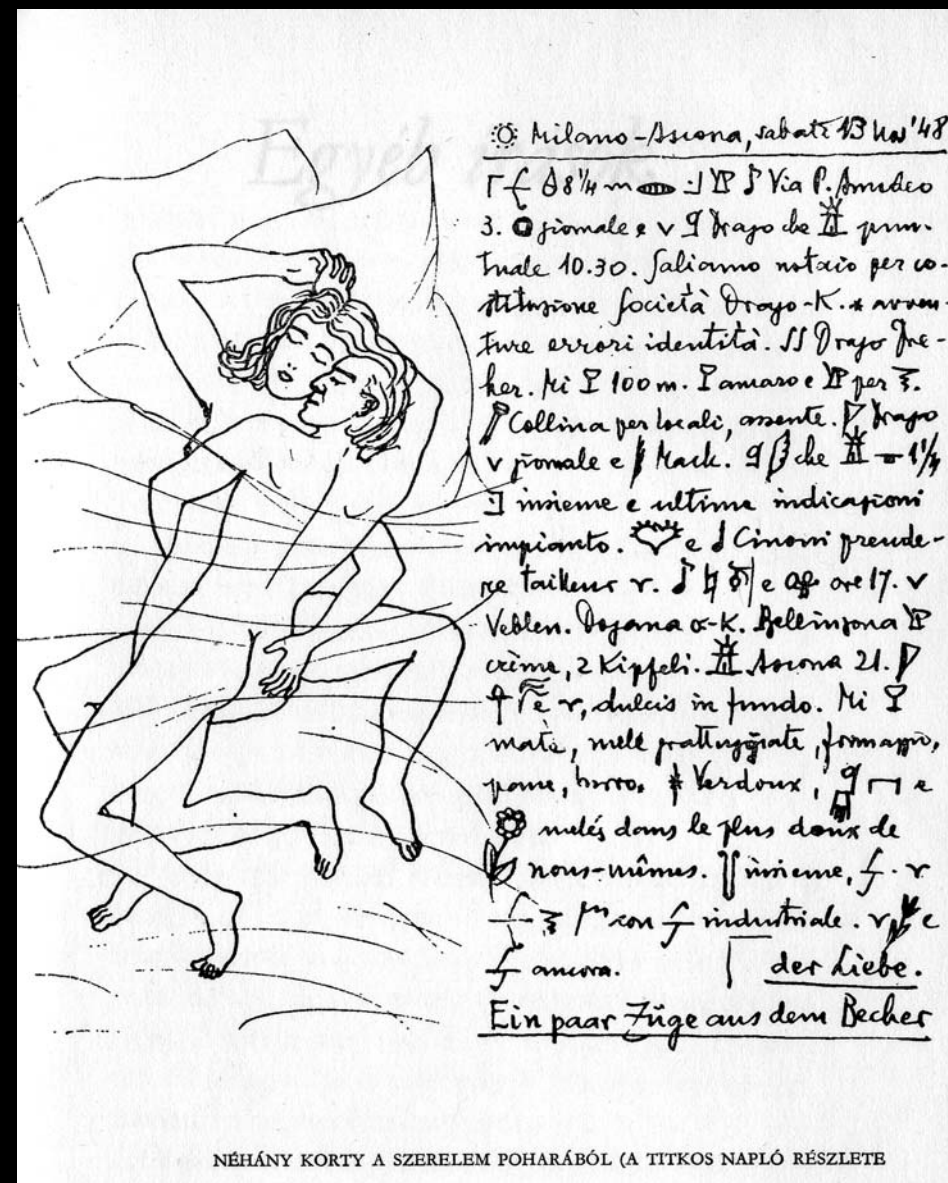 Milano-Ascona, sabato 13 Nov '48
8 1/4 m Via P. Amedeo
3. giornale e v Drago che pun-
tuale 10.30. Saliamo notaio per co-
stituzione Società Drago-K. * avven-
ture errori identità. Drago
Mi 100 m. amaro e per
Collina per locali, assente. Drago
v giornale e Mack. che 1 1/4
insieme e ultime indicazioni
impianto. e Cinomi prende-
re tailleur r. e ore 17. v
Veblen. Dogana α-K. Bellinzona
crème, 2 Kipfeli. Ascona 21.
è r, dulcis in fundo. Mi
mate, mele grattuggiate, formaggio,
pane, burro. * Verdoux, e
mêlés dans le plus doux de
nous-mêmes. insieme, r
con industriale. r e
ancora. der Liebe.
Ein paar Züge aus dem Becher
NÉHÁNY KORTY A SZERELEM POHARÁBÓL (A TITKOS NAPLÓ RÉSZLETE